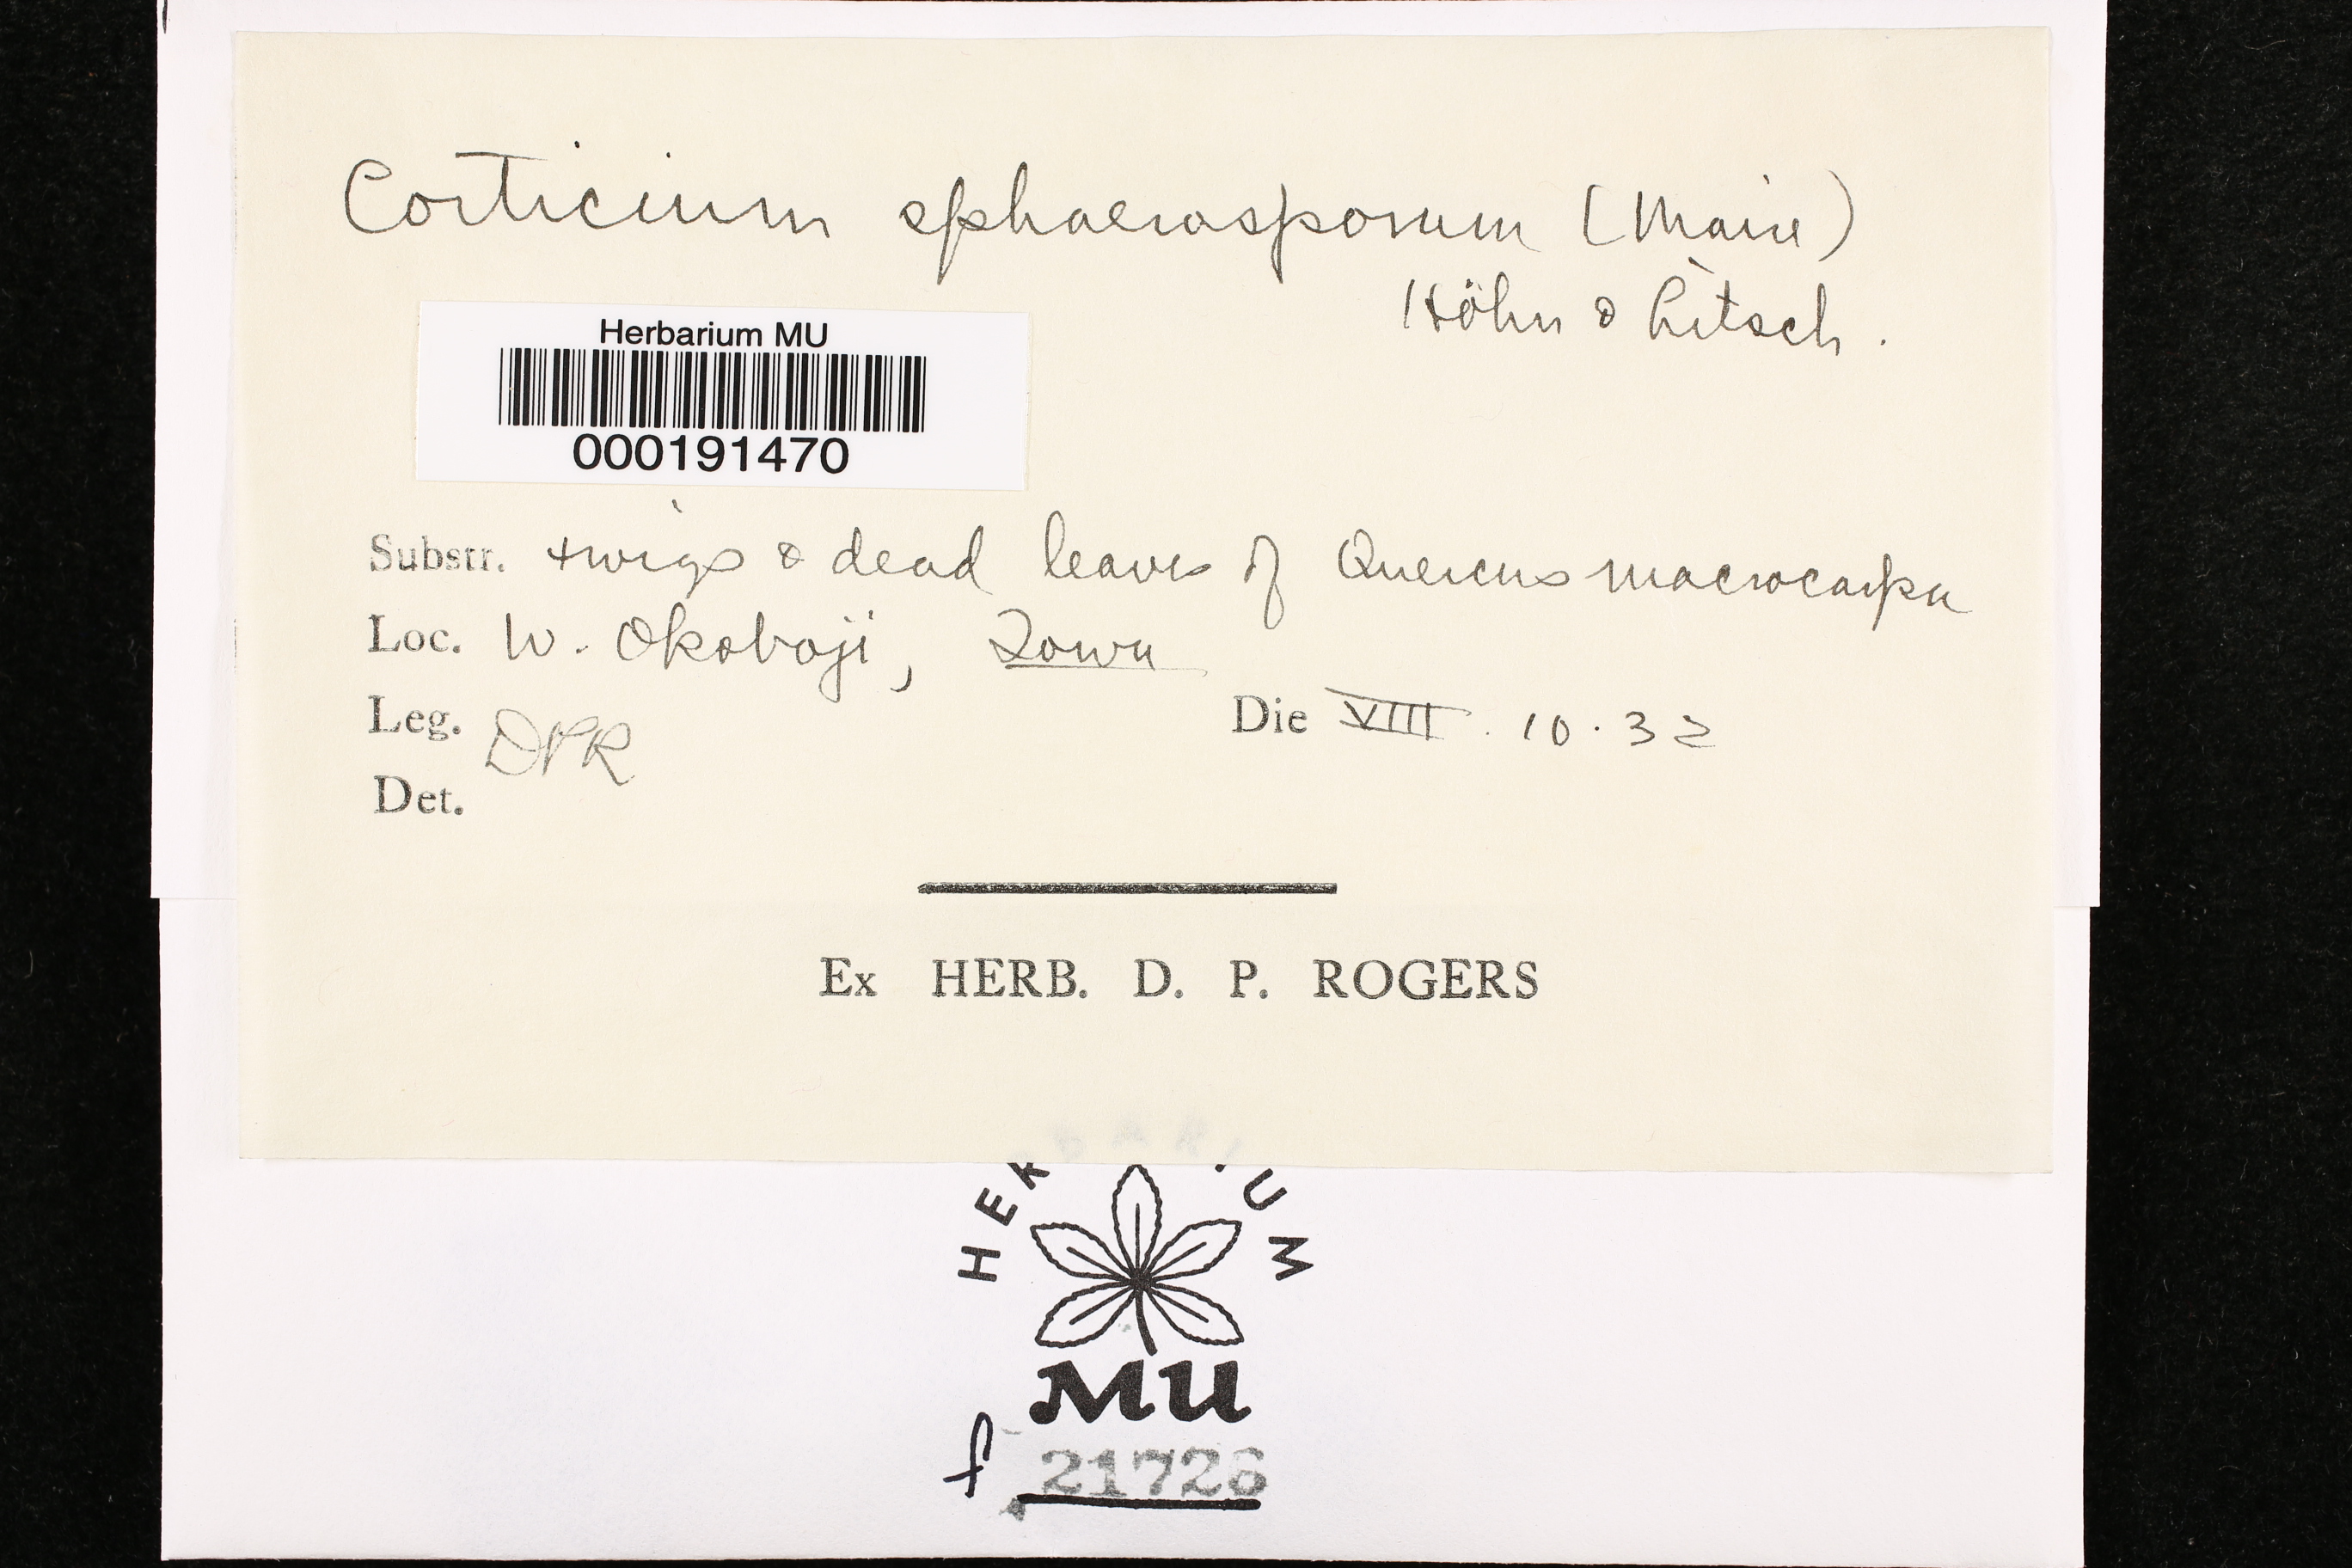 Corticium sphaerosporum (Maire)
Höhn & Litsch.
Herbarium MU
000191470
Substr. twigs & dead leaves of Quercus macrocarpa
Loc. W. Okoboji, Iowa
Leg. DPR Die VIII. 10. 32
Det.
Ex HERB. D. P. ROGERS
HERBARIUM
MU
f 21726